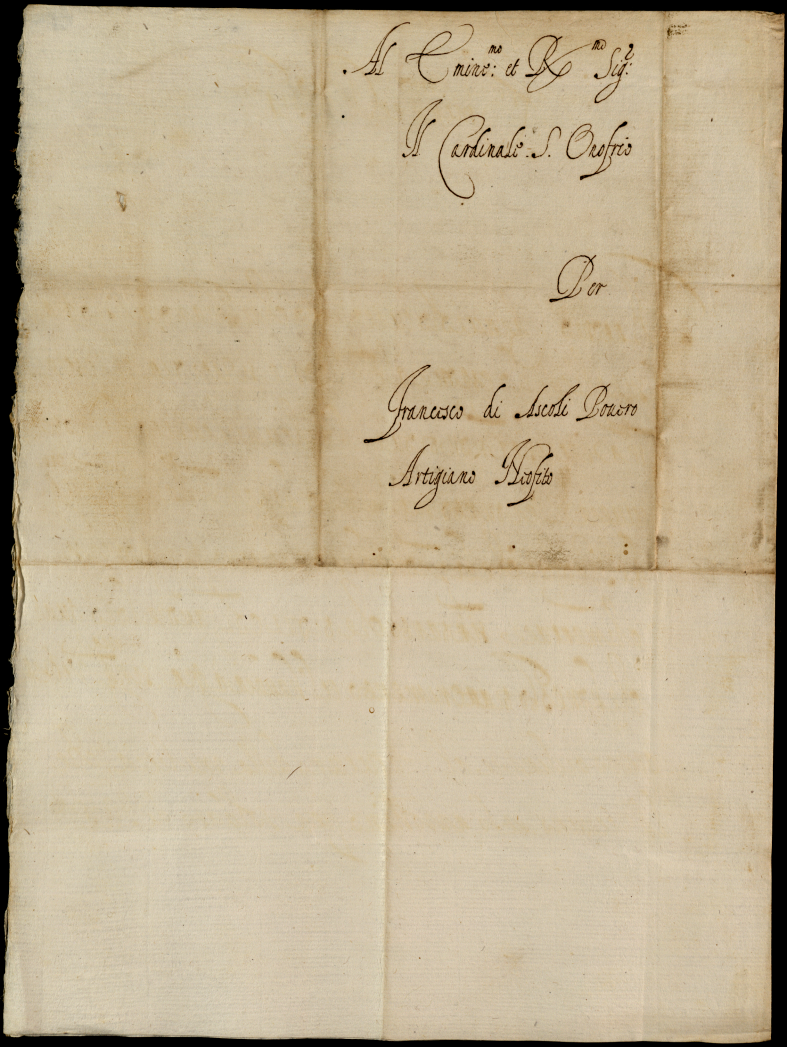 Al Emine.mo et R.mo Sig.r
Il Cardinale S. Onofrio
Per
Francesco di Ascoli Pouero
Artigiano Neofito